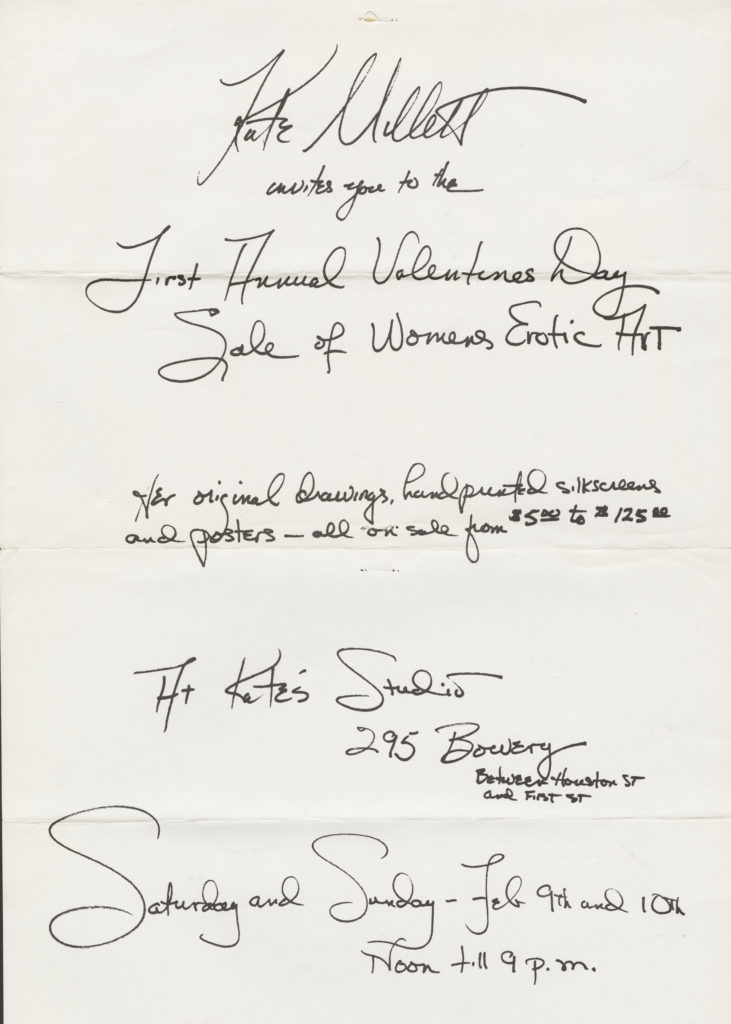 Kate Millett
invites you to the
First Annual Valentines Day
Sale of Womens Erotic Art
Her original drawings, handprinted silkscreens
and posters — all on sale from $5.00 to $125.00
At Kate's Studio
295 Bowery
Between Houston ST
and First ST
Saturday and Sunday - Feb 9th and 10th
Noon till 9 p.m.